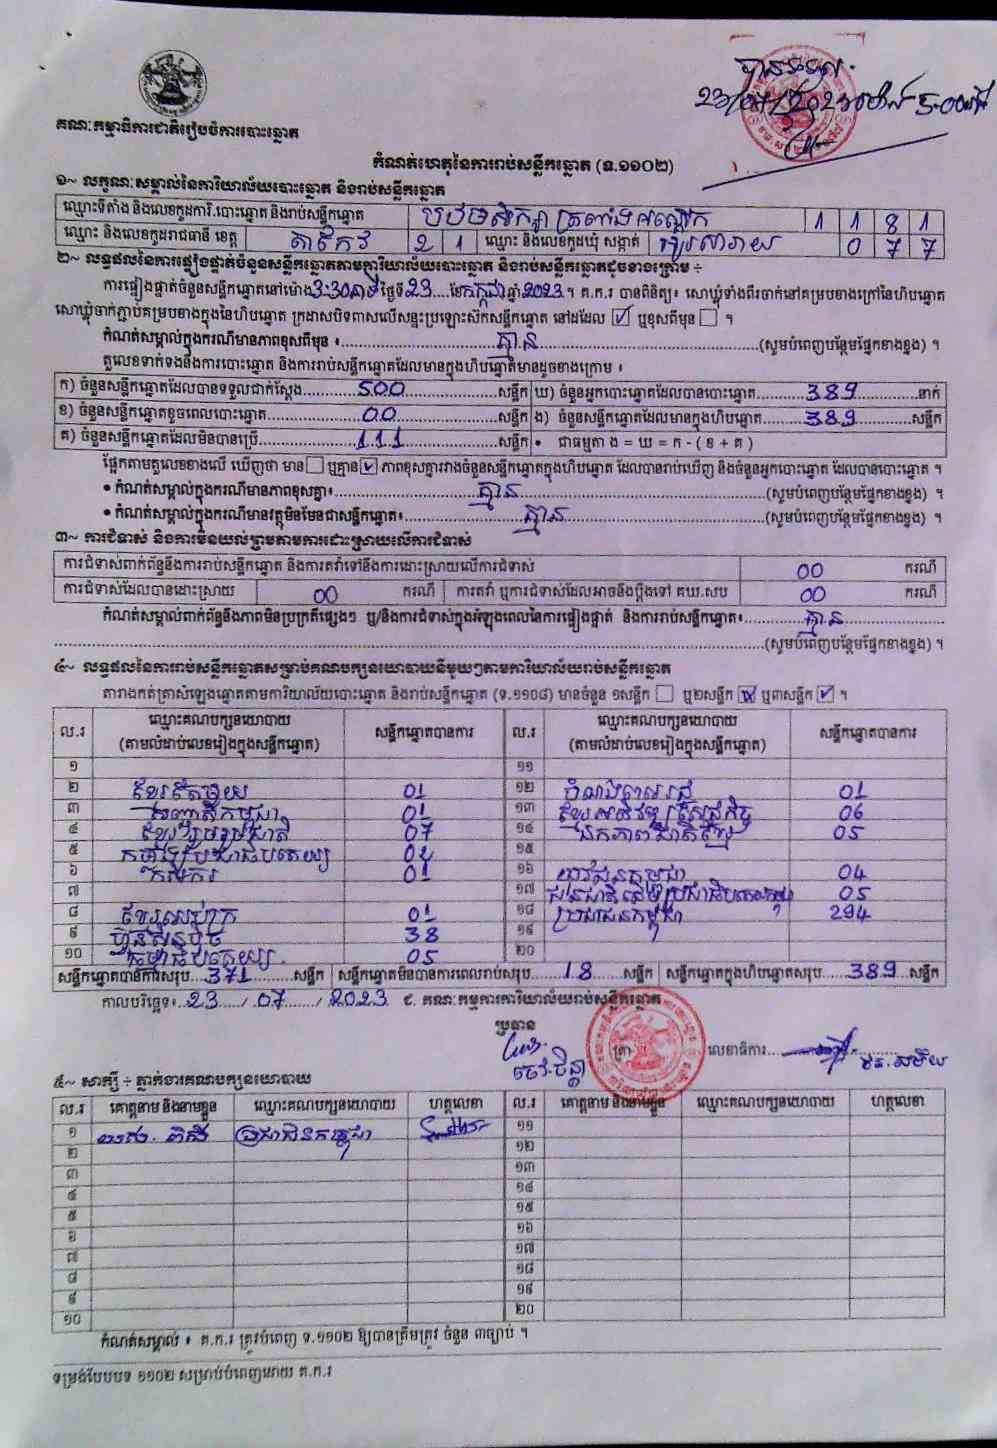 បានទទួល
គណៈកម្មាធិការជាតិរៀបចំការបោះឆ្នោត
កំណត់ហេតុនៃការរាប់សន្លឹកឆ្នោត (ទ.១១០២)
១~ លក្ខណៈសម្គាល់នៃការិយាល័យបោះឆ្នោត និងរាប់សន្លឹកឆ្នោត
ឈ្មោះទីតាំង និងលេខកូដការិ.បោះឆ្នោត និងរាប់សន្លឹកឆ្នោត បឋមសិក្សា ត្រពាំង 1 1 8 1
ឈ្មោះ និងលេខកូដរាជធានី ខេត្ត តាកែវ 2 1 ឈ្មោះ និងលេខកូដឃុំ សង្កាត់ 0 7 7
២~ លទ្ធផលនៃការផ្ទៀងផ្ទាត់ចំនួនសន្លឹកឆ្នោតតាមការិយាល័យបោះឆ្នោត និងរាប់សន្លឹកឆ្នោតដូចខាងក្រោម ÷
ការផ្ទៀងផ្ទាត់ចំនួនសន្លឹកឆ្នោតនៅម៉ោង 3:30នាទី ថ្ងៃទី 23 ខែ កក្កដា ឆ្នាំ 2023 ។ គ.ក.រ បានពិនិត្យ៖ សោឃ្លុំទាំងពីរចាក់នៅគម្របខាងក្រៅនៃហិបឆ្នោត
សោឃ្លុំចាក់ភ្ជាប់គម្របខាងក្នុងនៃហិបឆ្នោត ក្រដាសបិទពាសលើសន្ទះប្រឡោះស៊កសន្លឹកឆ្នោត នៅដដែល ☑ ឬខុសពីមុន ☐ ។
កំណត់សម្គាល់ក្នុងករណីមានភាពខុសពីមុន ៖ គ្មាន (សូមបំពេញបន្ថែមផ្នែកខាងខ្នង) ។
តួលេខទាក់ទងនឹងការបោះឆ្នោត និងការរាប់សន្លឹកឆ្នោតដែលមានក្នុងហិបឆ្នោតមានដូចខាងក្រោម ៖
ក) ចំនួនសន្លឹកឆ្នោតដែលបានទទួលជាក់ស្តែង 500 សន្លឹក ឃ) ចំនួនអ្នកបោះឆ្នោតដែលបានបោះឆ្នោត 389 នាក់
ខ) ចំនួនសន្លឹកឆ្នោតខូចពេលបោះឆ្នោត 00 សន្លឹក ង) ចំនួនសន្លឹកឆ្នោតដែលមានក្នុងហិបឆ្នោត 389 សន្លឹក
គ) ចំនួនសន្លឹកឆ្នោតដែលមិនបានប្រើ 111 សន្លឹក • ជាធម្មតា ង = ឃ = ក - ( ខ + គ )
ផ្អែកតាមតួលេខខាងលើ ឃើញថា មាន ☐ ឬគ្មាន ☑ ភាពខុសគ្នារវាងចំនួនសន្លឹកឆ្នោតក្នុងហិបឆ្នោត ដែលបានរាប់ឃើញ និងចំនួនអ្នកបោះឆ្នោត ដែលបានបោះឆ្នោត ។
• កំណត់សម្គាល់ក្នុងករណីមានភាពខុសគ្នា៖ គ្មាន (សូមបំពេញបន្ថែមផ្នែកខាងខ្នង) ។
• កំណត់សម្គាល់ក្នុងករណីមានវត្ថុមិនមែនជាសន្លឹកឆ្នោត៖ គ្មាន (សូមបំពេញបន្ថែមផ្នែកខាងខ្នង) ។
៣~ ការជំទាស់ និងការមិនយល់ព្រមតាមការដោះស្រាយលើការជំទាស់
ការជំទាស់ពាក់ព័ន្ធនឹងការរាប់សន្លឹកឆ្នោត និងការតវ៉ាទៅនឹងការដោះស្រាយលើការជំទាស់ 00 ករណី
ការជំទាស់ដែលបានដោះស្រាយ 00 ករណី ការតវ៉ា ឬការជំទាស់ដែលអាចនឹងប្តឹងទៅ គឃ.សប 00 ករណី
កំណត់សម្គាល់ពាក់ព័ន្ធនឹងភាពមិនប្រក្រតីផ្សេងៗ ឬ/និងការជំទាស់ក្នុងអំឡុងពេលនៃការផ្ទៀងផ្ទាត់ និងការរាប់សន្លឹកឆ្នោត៖ គ្មាន
(សូមបំពេញបន្ថែមផ្នែកខាងខ្នង) ។
៤~ លទ្ធផលនៃការរាប់សន្លឹកឆ្នោតសម្រាប់គណបក្សនយោបាយនីមួយៗតាមការិយាល័យរាប់សន្លឹកឆ្នោត
តារាងកត់ត្រាសំឡេងឆ្នោតតាមការិយាល័យបោះឆ្នោត និងរាប់សន្លឹកឆ្នោត (ទ.១១០៨) មានចំនួន ១សន្លឹក ☐ ឬ២សន្លឹក ☑ ឬ៣សន្លឹក ☑ ។
ល.រ ឈ្មោះគណបក្សនយោបាយ សន្លឹកឆ្នោតបានការ ល.រ ឈ្មោះគណបក្សនយោបាយ សន្លឹកឆ្នោតបានការ
(តាមលំដាប់លេខរៀងក្នុងសន្លឹកឆ្នោត) (តាមលំដាប់លេខរៀងក្នុងសន្លឹកឆ្នោត)
១ ១១
២ ខ្មែរតែមួយ 01 ១២ 01
៣ 01 ១៣ ខ្មែរអភិវឌ្ឍន៍សេដ្ឋកិច្ច 06
៤ ខ្មែររួបរួមជាតិ 07 ១៤ ឯកភាពជាតិខ្មែរ 05
៥ កម្លាំងប្រជាធិបតេយ្យ ១៥
៦ កសិករ 01 ១៦ យុវជនកម្ពុជា 04
៧ ១៧ ជនជាតិដើមប្រជាធិបតេយ្យកម្ពុជា 05
៨ 01 ១៨ ប្រជាជនកម្ពុជា 294
៩ ហ៊្វុនស៊ិនប៉ិច 38 ១៩
១០ ធម្មាធិបតេយ្យ 05 ២០
សន្លឹកឆ្នោតបានការសរុប 371 សន្លឹក សន្លឹកឆ្នោតមិនបានការពេលរាប់សរុប 18 សន្លឹក សន្លឹកឆ្នោតក្នុងហិបឆ្នោតសរុប 389 សន្លឹក
កាលបរិច្ឆេទ៖ 23 / 07 / 2023 ៩. គណៈកម្មការការិយាល័យរាប់សន្លឹកឆ្នោត
ប្រធាន
ត្រា លេខាធិការ
៥~ សាក្សី ÷ ភ្នាក់ងារគណបក្សនយោបាយ
ល.រ គោត្តនាម និងនាមខ្លួន ឈ្មោះគណបក្សនយោបាយ ហត្ថលេខា ល.រ គោត្តនាម និងនាមខ្លួន ឈ្មោះគណបក្សនយោបាយ ហត្ថលេខា
១ ប្រជាជនកម្ពុជា ១១
២ ១២
៣ ១៣
៤ ១៤
៥ ១៥
៦ ១៦
៧ ១៧
៨ ១៨
៩ ១៩
១០ ២០
កំណត់សម្គាល់ ៖ គ.ក.រ ត្រូវបំពេញ ទ.១១០២ ឱ្យបានត្រឹមត្រូវ ចំនួន ៣ច្បាប់ ។
ទម្រង់បែបបទ ១១០២ សម្រាប់បំពេញដោយ គ.ក.រ